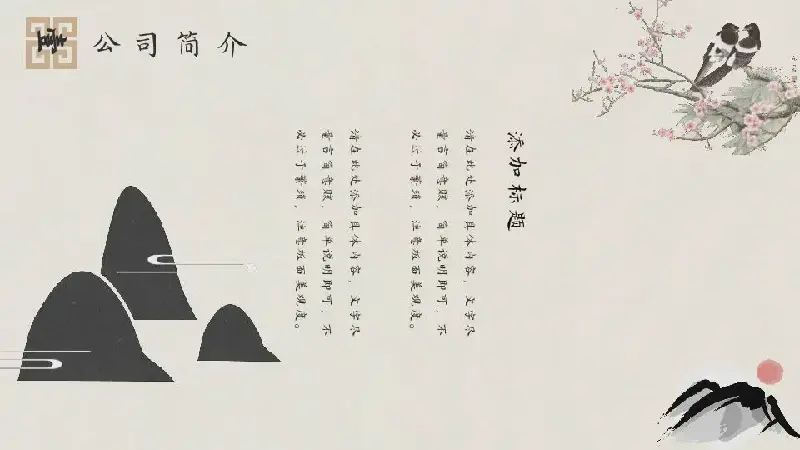 壹
公司简介
添加标题
请在此处添加具体内容，文字尽
量言简意赅，简单说明即可，不
必过于繁琐，注意版面美观度。
请在此处添加具体内容，文字尽
量言简意赅，简单说明即可，不
必过于繁琐，注意版面美观度。